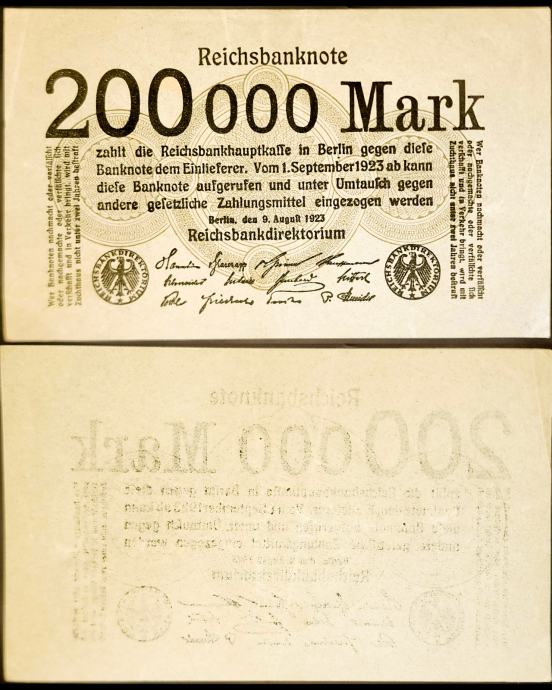 Reichsbanknote
200000 Mark
zahlt die Reichsbankhauptkasse in Berlin gegen diese
Banknote dem Einlieferer. Vom 1. September 1923 ab kann
diese Banknote aufgerufen und unter Umtausch gegen
andere gesetzliche Zahlungsmittel eingezogen werden
Berlin, den 9. August 1923
Reichsbankdirektorium
Wer Banknoten nachmacht oder verfälscht
oder nachgemachte oder verfälschte sich
verschafft und in Verkehr bringt, wird mit
Zuchthaus nicht unter zwei Jahren bestraft
Wer Banknoten nachmacht oder verfälscht
oder nachgemachte oder verfälschte sich
verschafft und in Verkehr bringt, wird mit
Zuchthaus nicht unter zwei Jahren bestraft
REICHSBANKDIREKTORIUM
REICHSBANKDIREKTORIUM